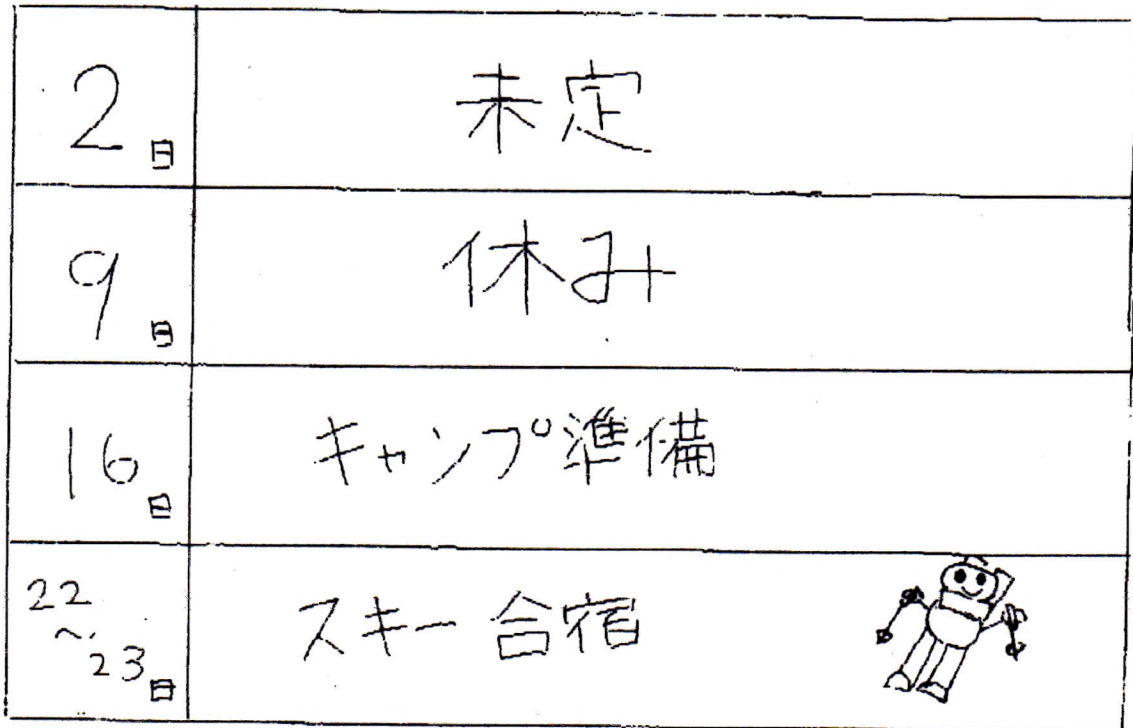 2日 未定
9日 休み
16日 キャンプ準備
22
〜
23日 スキー合宿